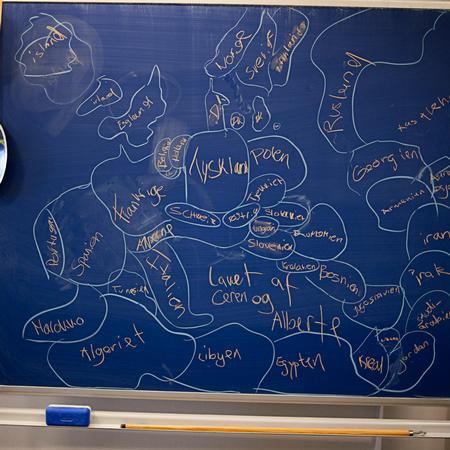 island
Norge
Sverige
Finland
Rusland
irland
England
Dk
Dk
Belgien
Holland
Tyskland
Polen
Georgien
Frankrige
Schweiz
Østrig
Slovakiet
Ungarn
Slovenien
Rumænien
Armenien
iran
Portugal
Spanien
Italien
Kroatien
Bosnien
Jugoslavien
irak
Tunesien
Lavet af
Ceren og
Alberte
Saudi-
arabien
Marokko
Algeriet
Libyen
Egypten
Jordan